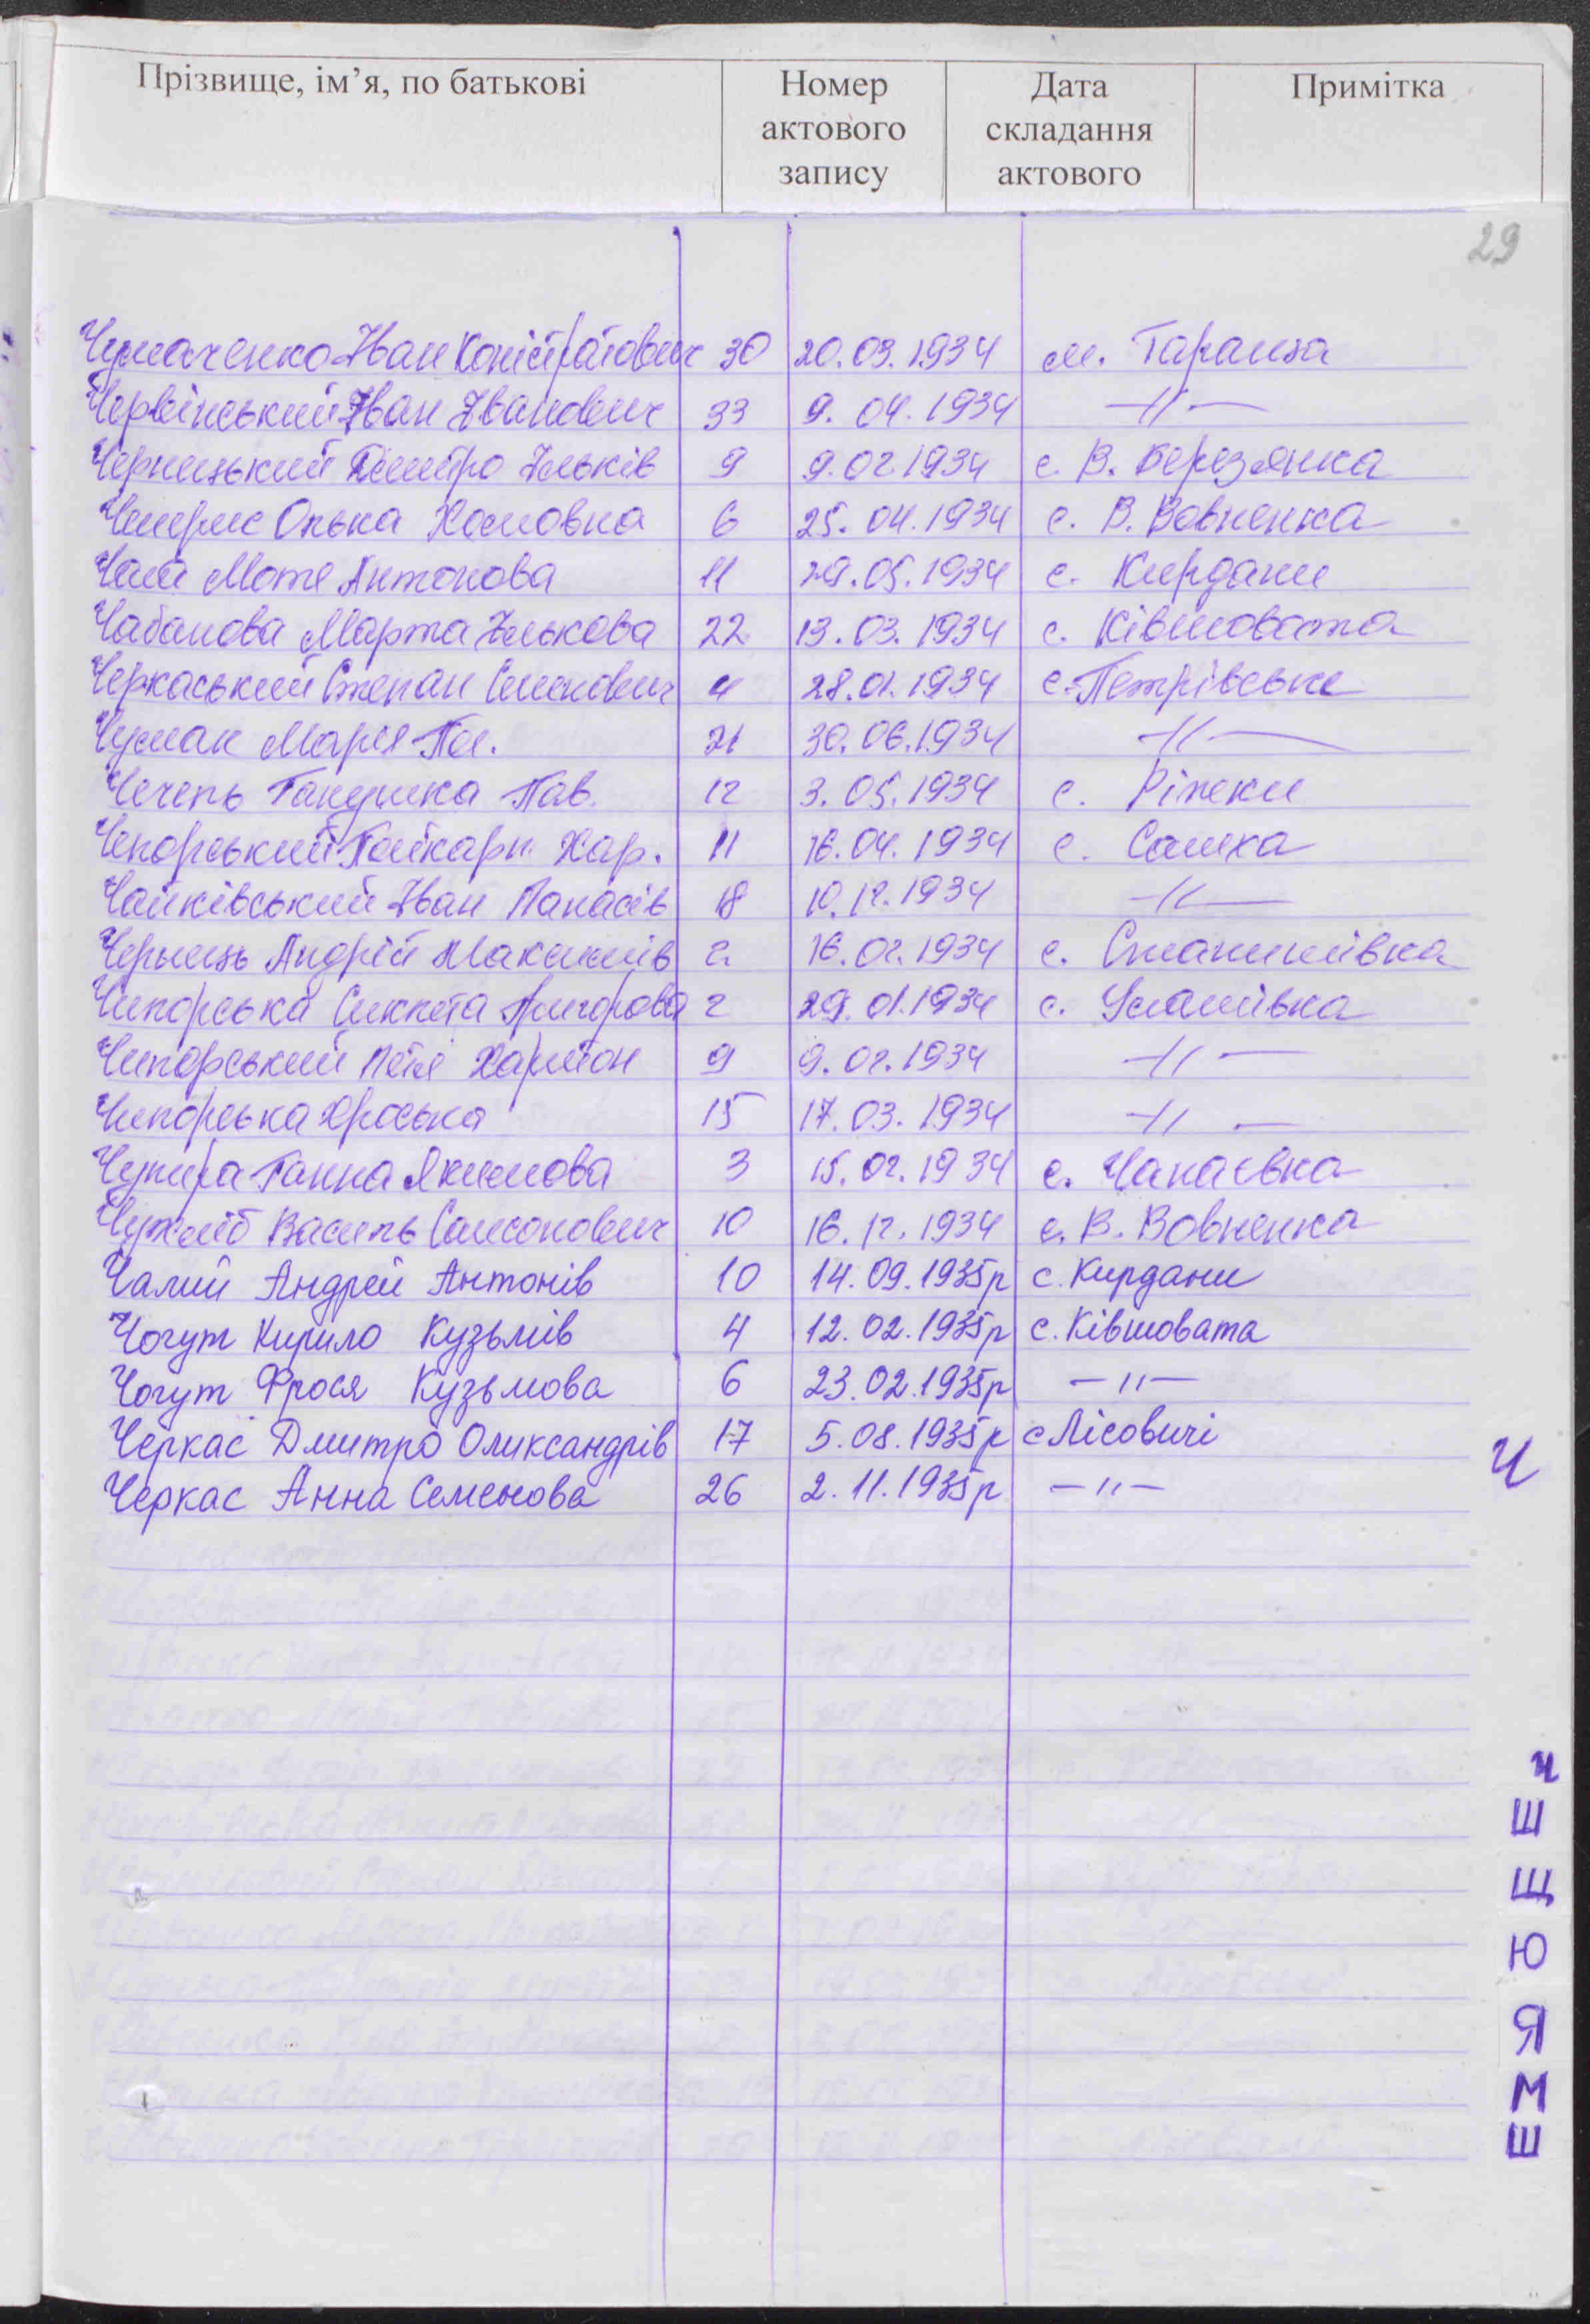 Прізвище, ім’я, по батькові Номер актового запису Дата складання актового Примітка
29
Чумаченко Іван Коністратович 30 20.03.1934 м. Тараща
Червінський Іван Іванович 33 9.04.1934 -//-
Черницький Дмитро Ільків 9 9.02.1934 с. В. Березянка
Чемерис Олька Хомовна 6 25.04.1934 с. В. Вовненка
Чала Мотя Антонова 11 29.05.1934 с. Кирдани
Чабанова Марта Ількова 22 13.03.1934 с. Ківшовата
Черкаський Степан Семенович 4 28.01.1934 с. Петрівське
Чумак Марія 21 30.06.1934 -//-
Чечель Ганушка Пав. 12 3.05.1934 с. Ріжки
Чепорський Хар. 11 16.04.1934 с. Салиха
Чайківський Іван Панасів 18 10.12.1934 -//-
Чернець Андрій Максимів 2 16.02.1934 с. Станишівка
Чипорська Григорова 2 29.01.1934 с. Улашівка
Чипорський Петя Харитон 9 9.02.1934 -//-
Чипорська Фроська 15 17.03.1934 -//-
Чупира Ганна Якимова 3 15.02.1934 с. Чапаєвка
Василь Самсонович 10 16.12.1934 с. В. Вовненка
Чалий Андрей Антонів 10 14.09.1935р с. Кирдани
Чогут Кирило Кузьмів 4 12.02.1935р с. Ківшовата
Чогут Фрося Кузьмова 6 23.02.1935р -//-
Черкас Дмитро Оликсандрів 17 5.08.1935р с Лісовичі
Черкас Анна Семенова 26 2.11.1935р -//-
Ч
Ч
Ш
Щ
Ю
Я
М
Ш